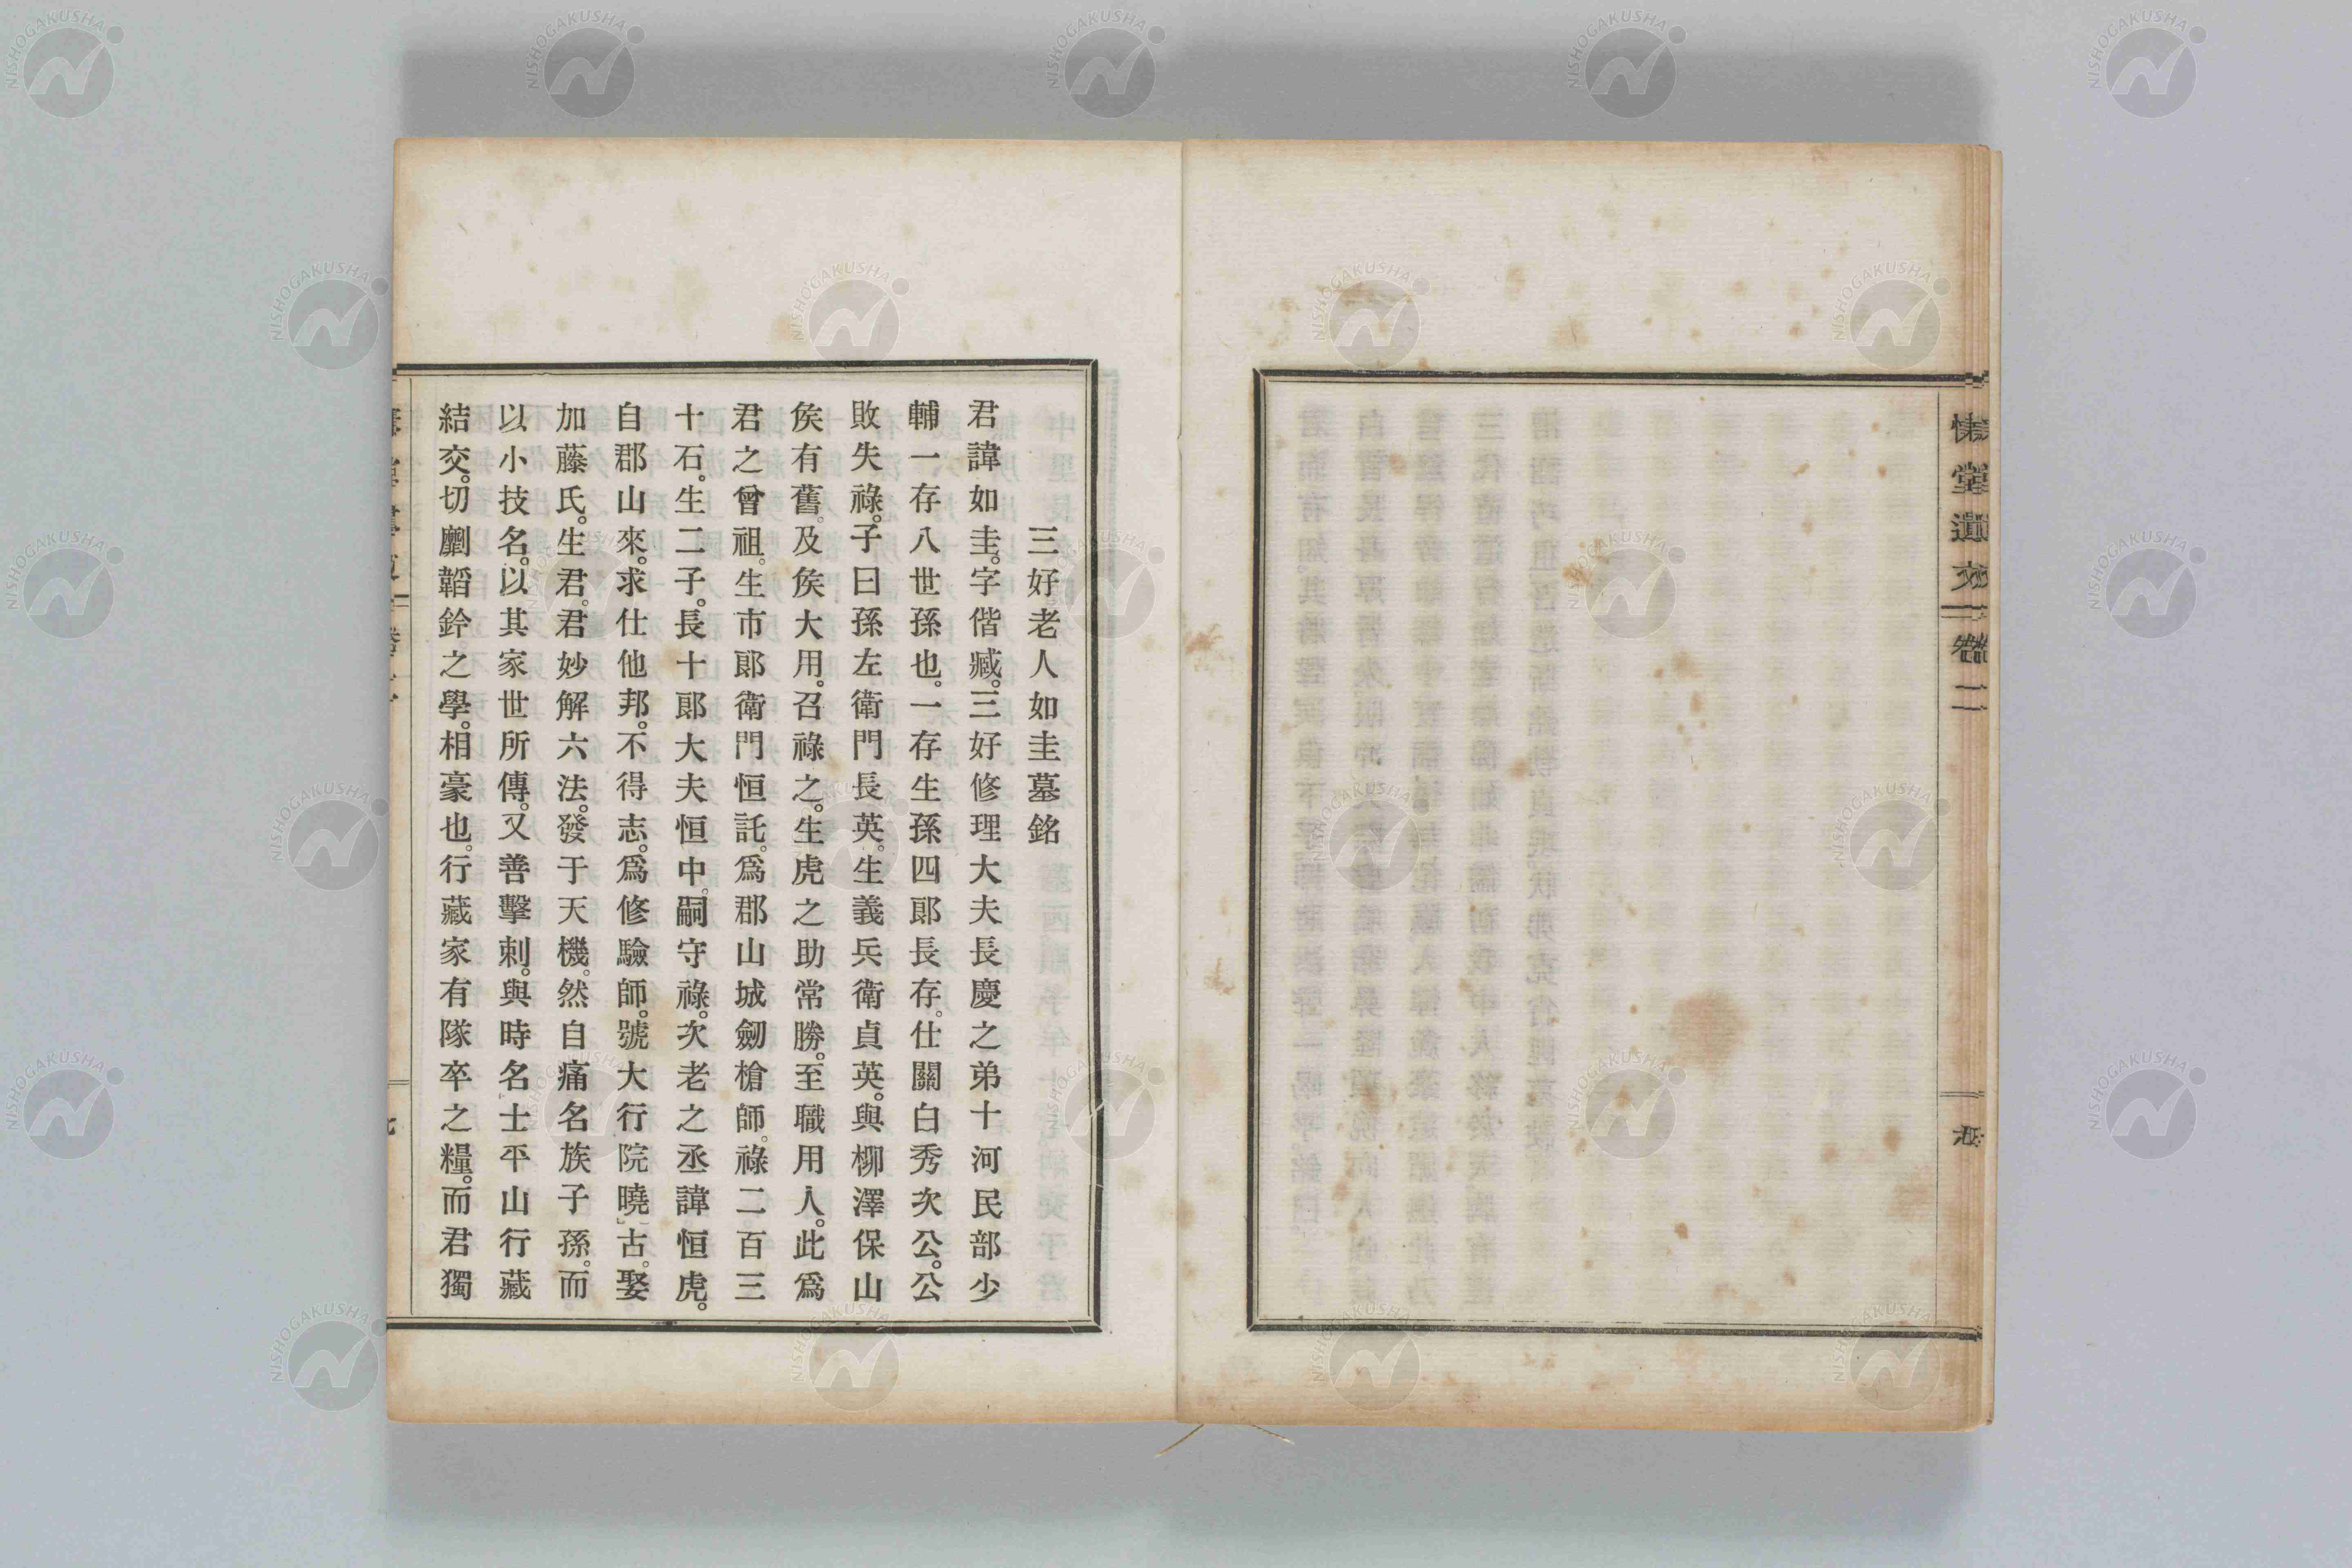 慊堂遺文
卷二
三好老人如圭墓銘
君諱如圭。字偕臧。三好修理大夫長慶之弟十河民部少
輔一存八世孫也。一存生孫四郞長存。仕關白秀次公。公
敗失祿。子曰孫左衛門長英。生義兵衛貞英。與柳澤保山
矦有舊。及矦大用。召祿之。生虎之助常勝。至職用人。此爲
君之曾祖。生市郞衛門恒託。爲郡山城劒槍師。祿二百三
十石。生二子。長十郞大夫恒中。嗣守祿。次老之丞諱恒虎。
自郡山來。求仕他邦。不得志。爲修驗師。號大行院曉古。娶
加藤氏。生君。君妙解六法。發于天機。然自痛名族子孫。而
以小技名。以其家世所傳。又善擊刺。與時名士平山行藏
結交。切劘韜鈐之學。相豪也。行藏家有隊卒之糧。而君獨